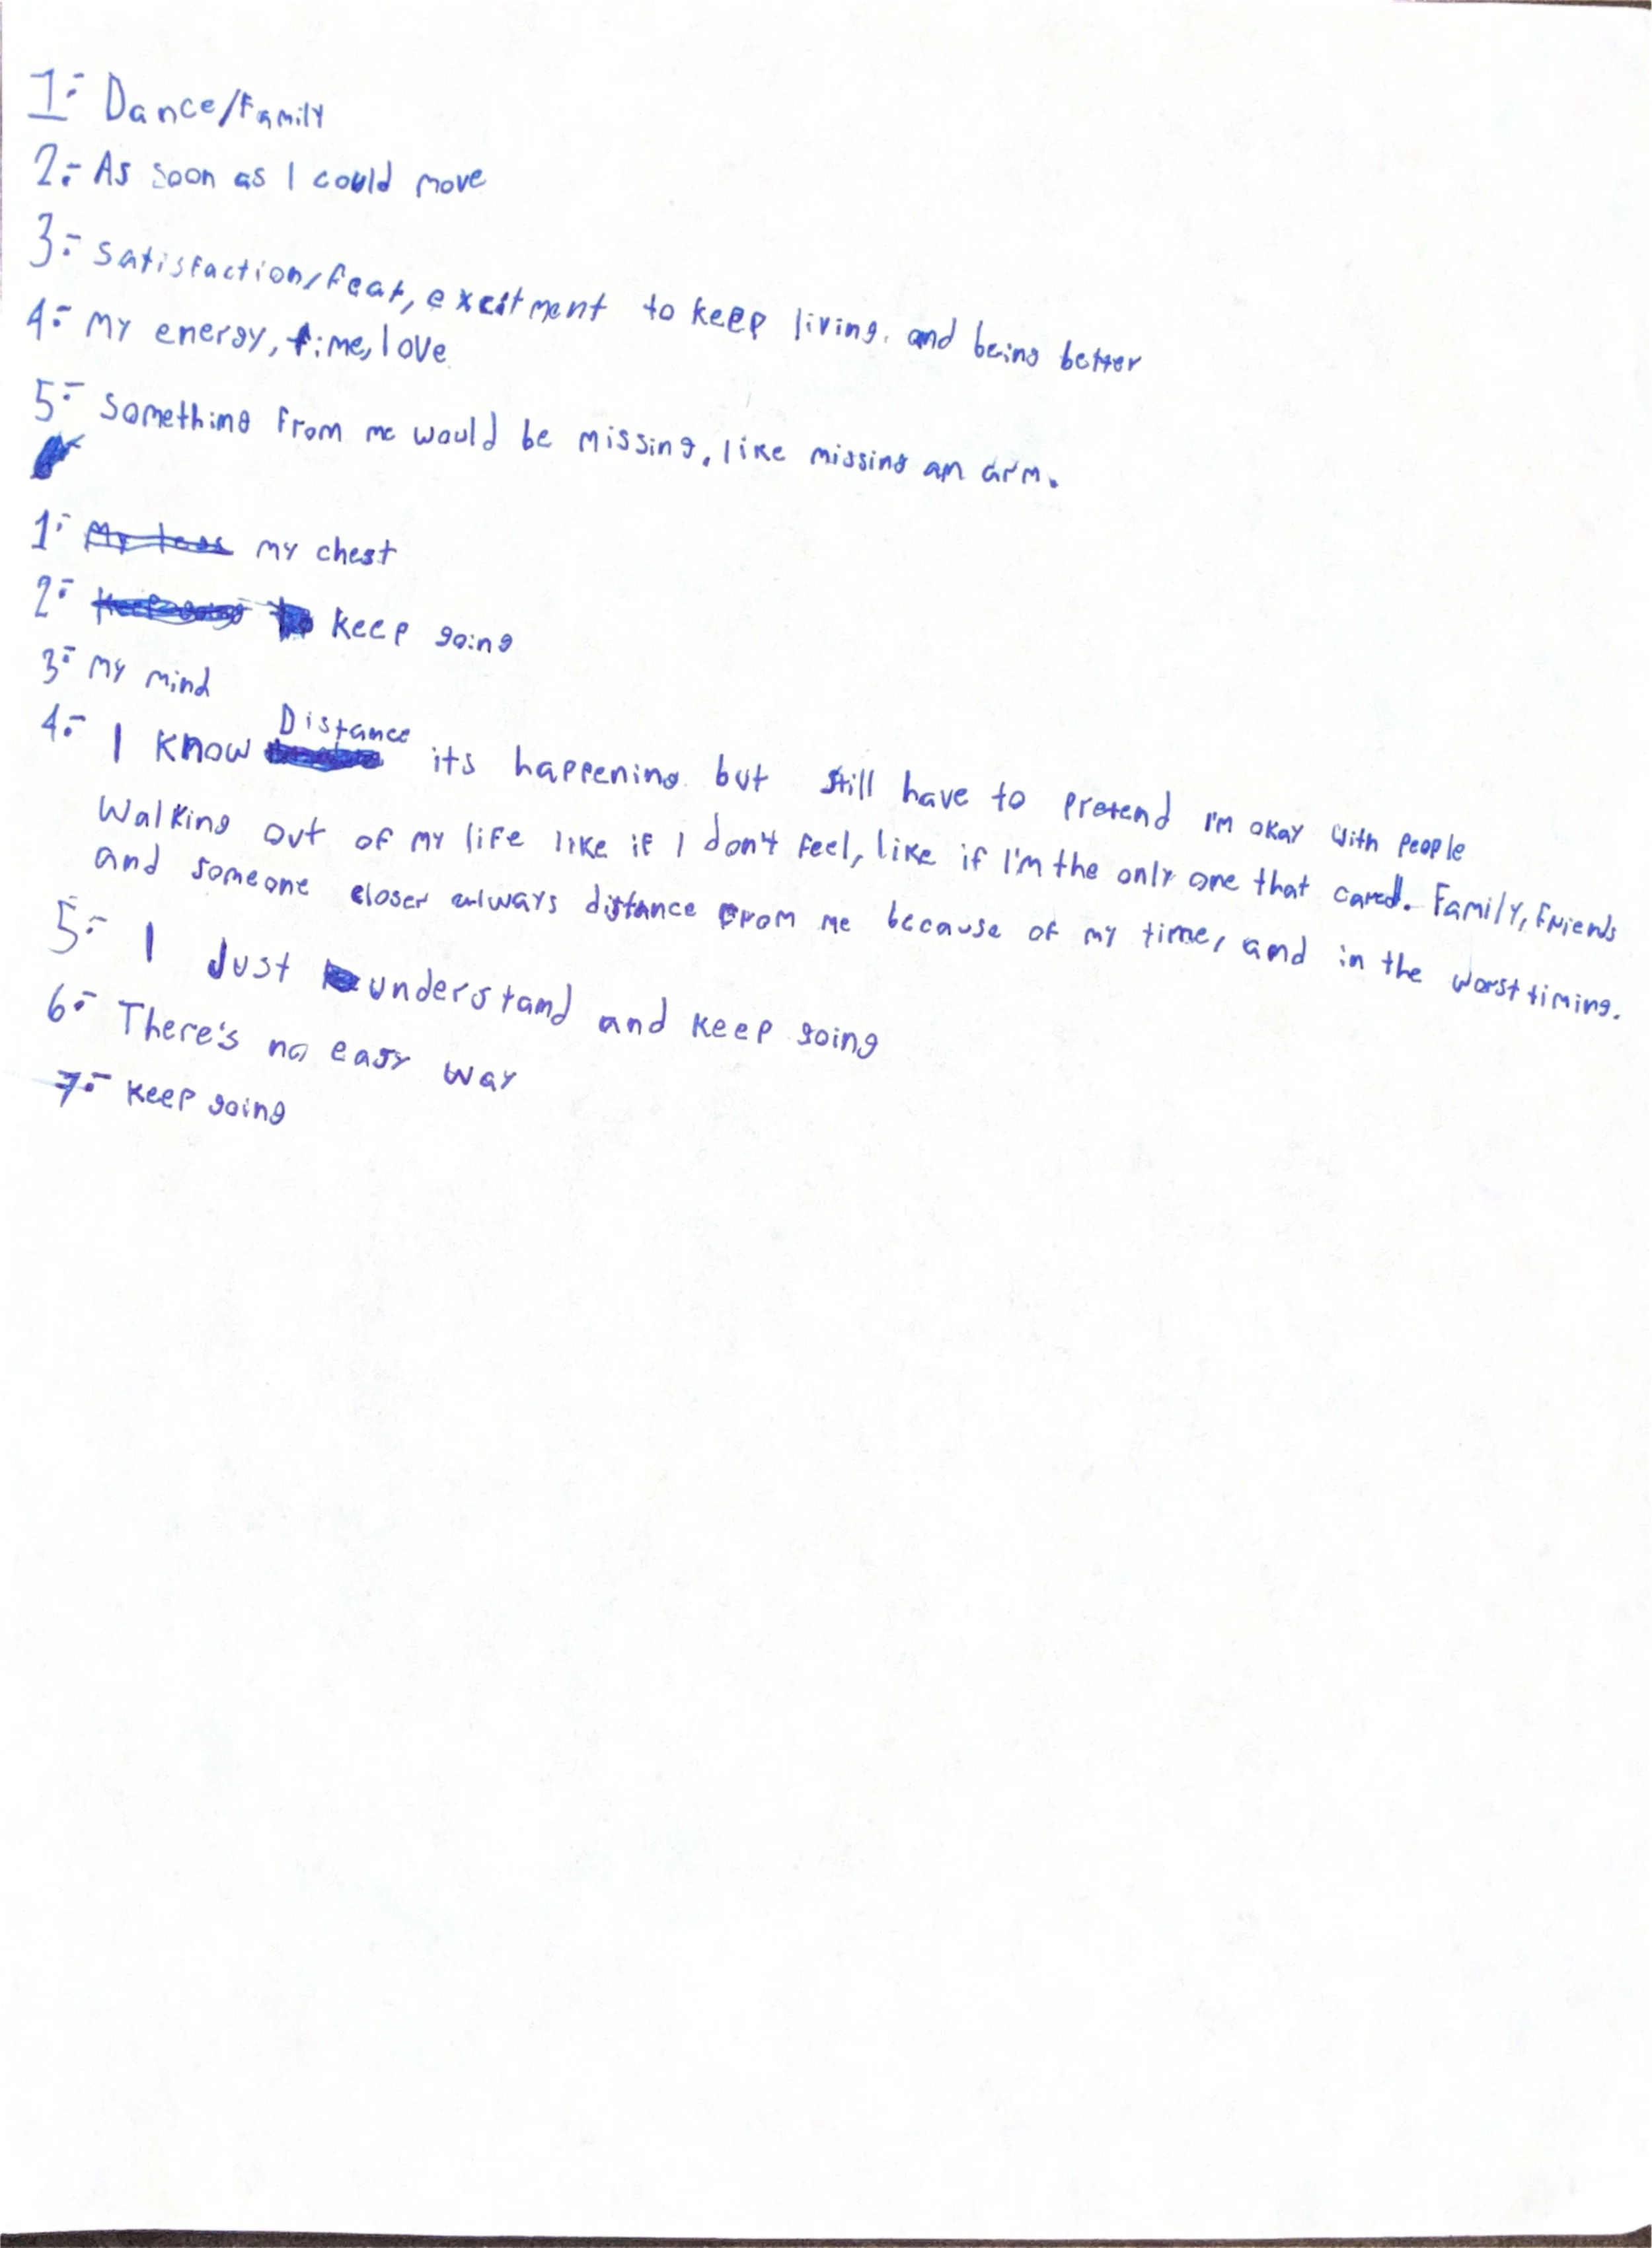 1.- Dance/Family
2.- As soon as I could move
3.- Satisfaction/fear, excitment to keep living. and being better
4.- My energy, time, love
5.- Something from me would be missing, like missing an arm.
1.- my chest
2.- keep going
3.- My mind
Distance
4.- I know its happening but still have to pretend I'm okay with people
Walking out of my life like if I don't feel, like if I'm the only one that cared. Family, friends
and someone closer always distance from me because of my time, and in the worst timing.
5.- I Just understand and keep going
6.- There's no easy way
7.- Keep going